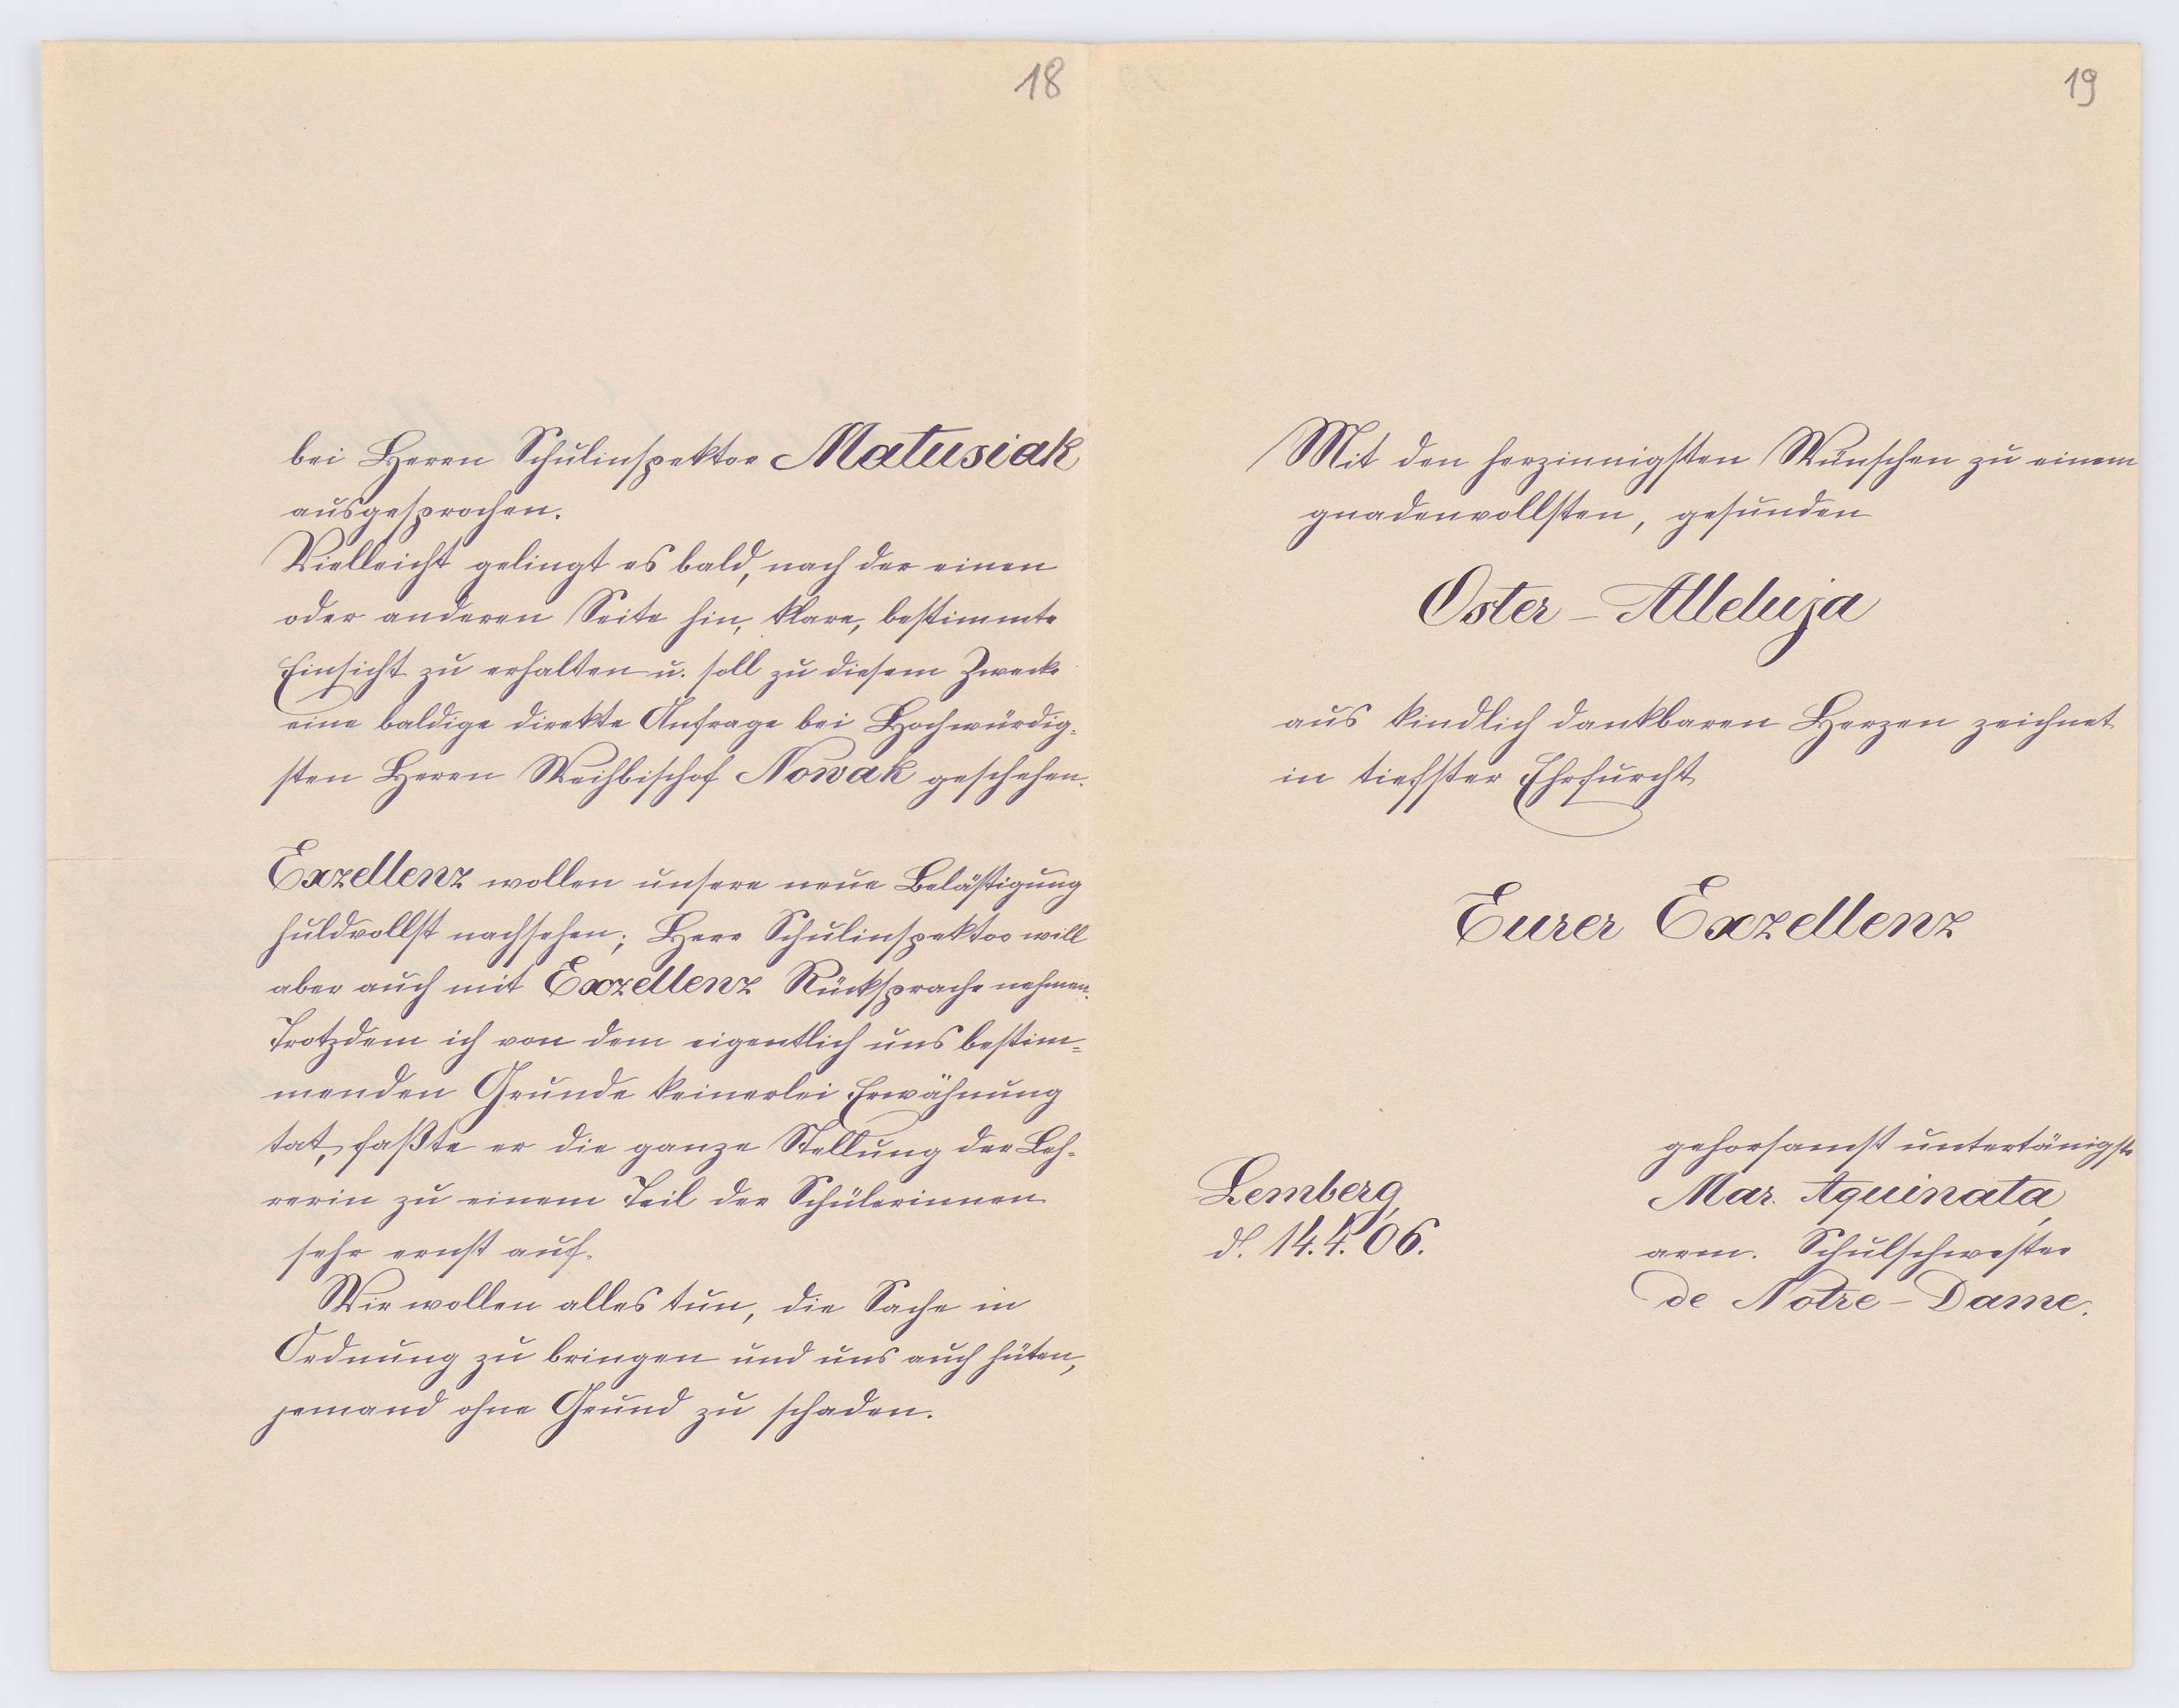 18
bei Herrn Schulinspektor Matusiak
ausgesprochen.
Vielleicht gelingt es bald, nach der einen
oder anderen Seite hin, klare, bestimmte
Einsicht zu erhalten u. soll zu diesem Zwecke
eine baldige direkte Anfrage bei Hochwürdig-
sten Herrn Weihbischof Nowak geschehen.
Exzellenz wollen unsere neue Belästigung
huldvollst nachsehen; Herr Schulinspektor will
aber auch mit Exzellenz Rücksprache nehmen.
Trotzdem ich von dem eigentlich uns bestim-
menden Grunde keinerlei Erwähnung
tat, faßte er die ganze Stellung der Leh-
rerin zu einem Teil der Schülerinnen
sehr ernst auf.
Wir wollen alles tun, die Sache in
Ordnung zu bringen und uns auch hüten,
jemand ohne Grund zu schaden.
19
Mit den herzinnigsten Wünschen zu einem
gnadenvollsten, gesunden
Oster-Alleluja
aus kindlich dankbaren Herzen zeichnet
in tiefster Ehrfurcht
Eurer Exzellenz
gehorsamst untertänigste
Mar. Aquinata,
arm. Schulschwester
de Notre-Dame.
Lemberg,
d. 14.4.06.